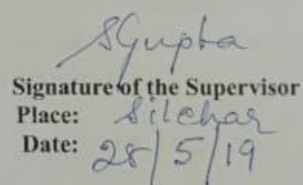 SGupta
Signature of the Supervisor
Place: Silchar
Date: 28/5/19